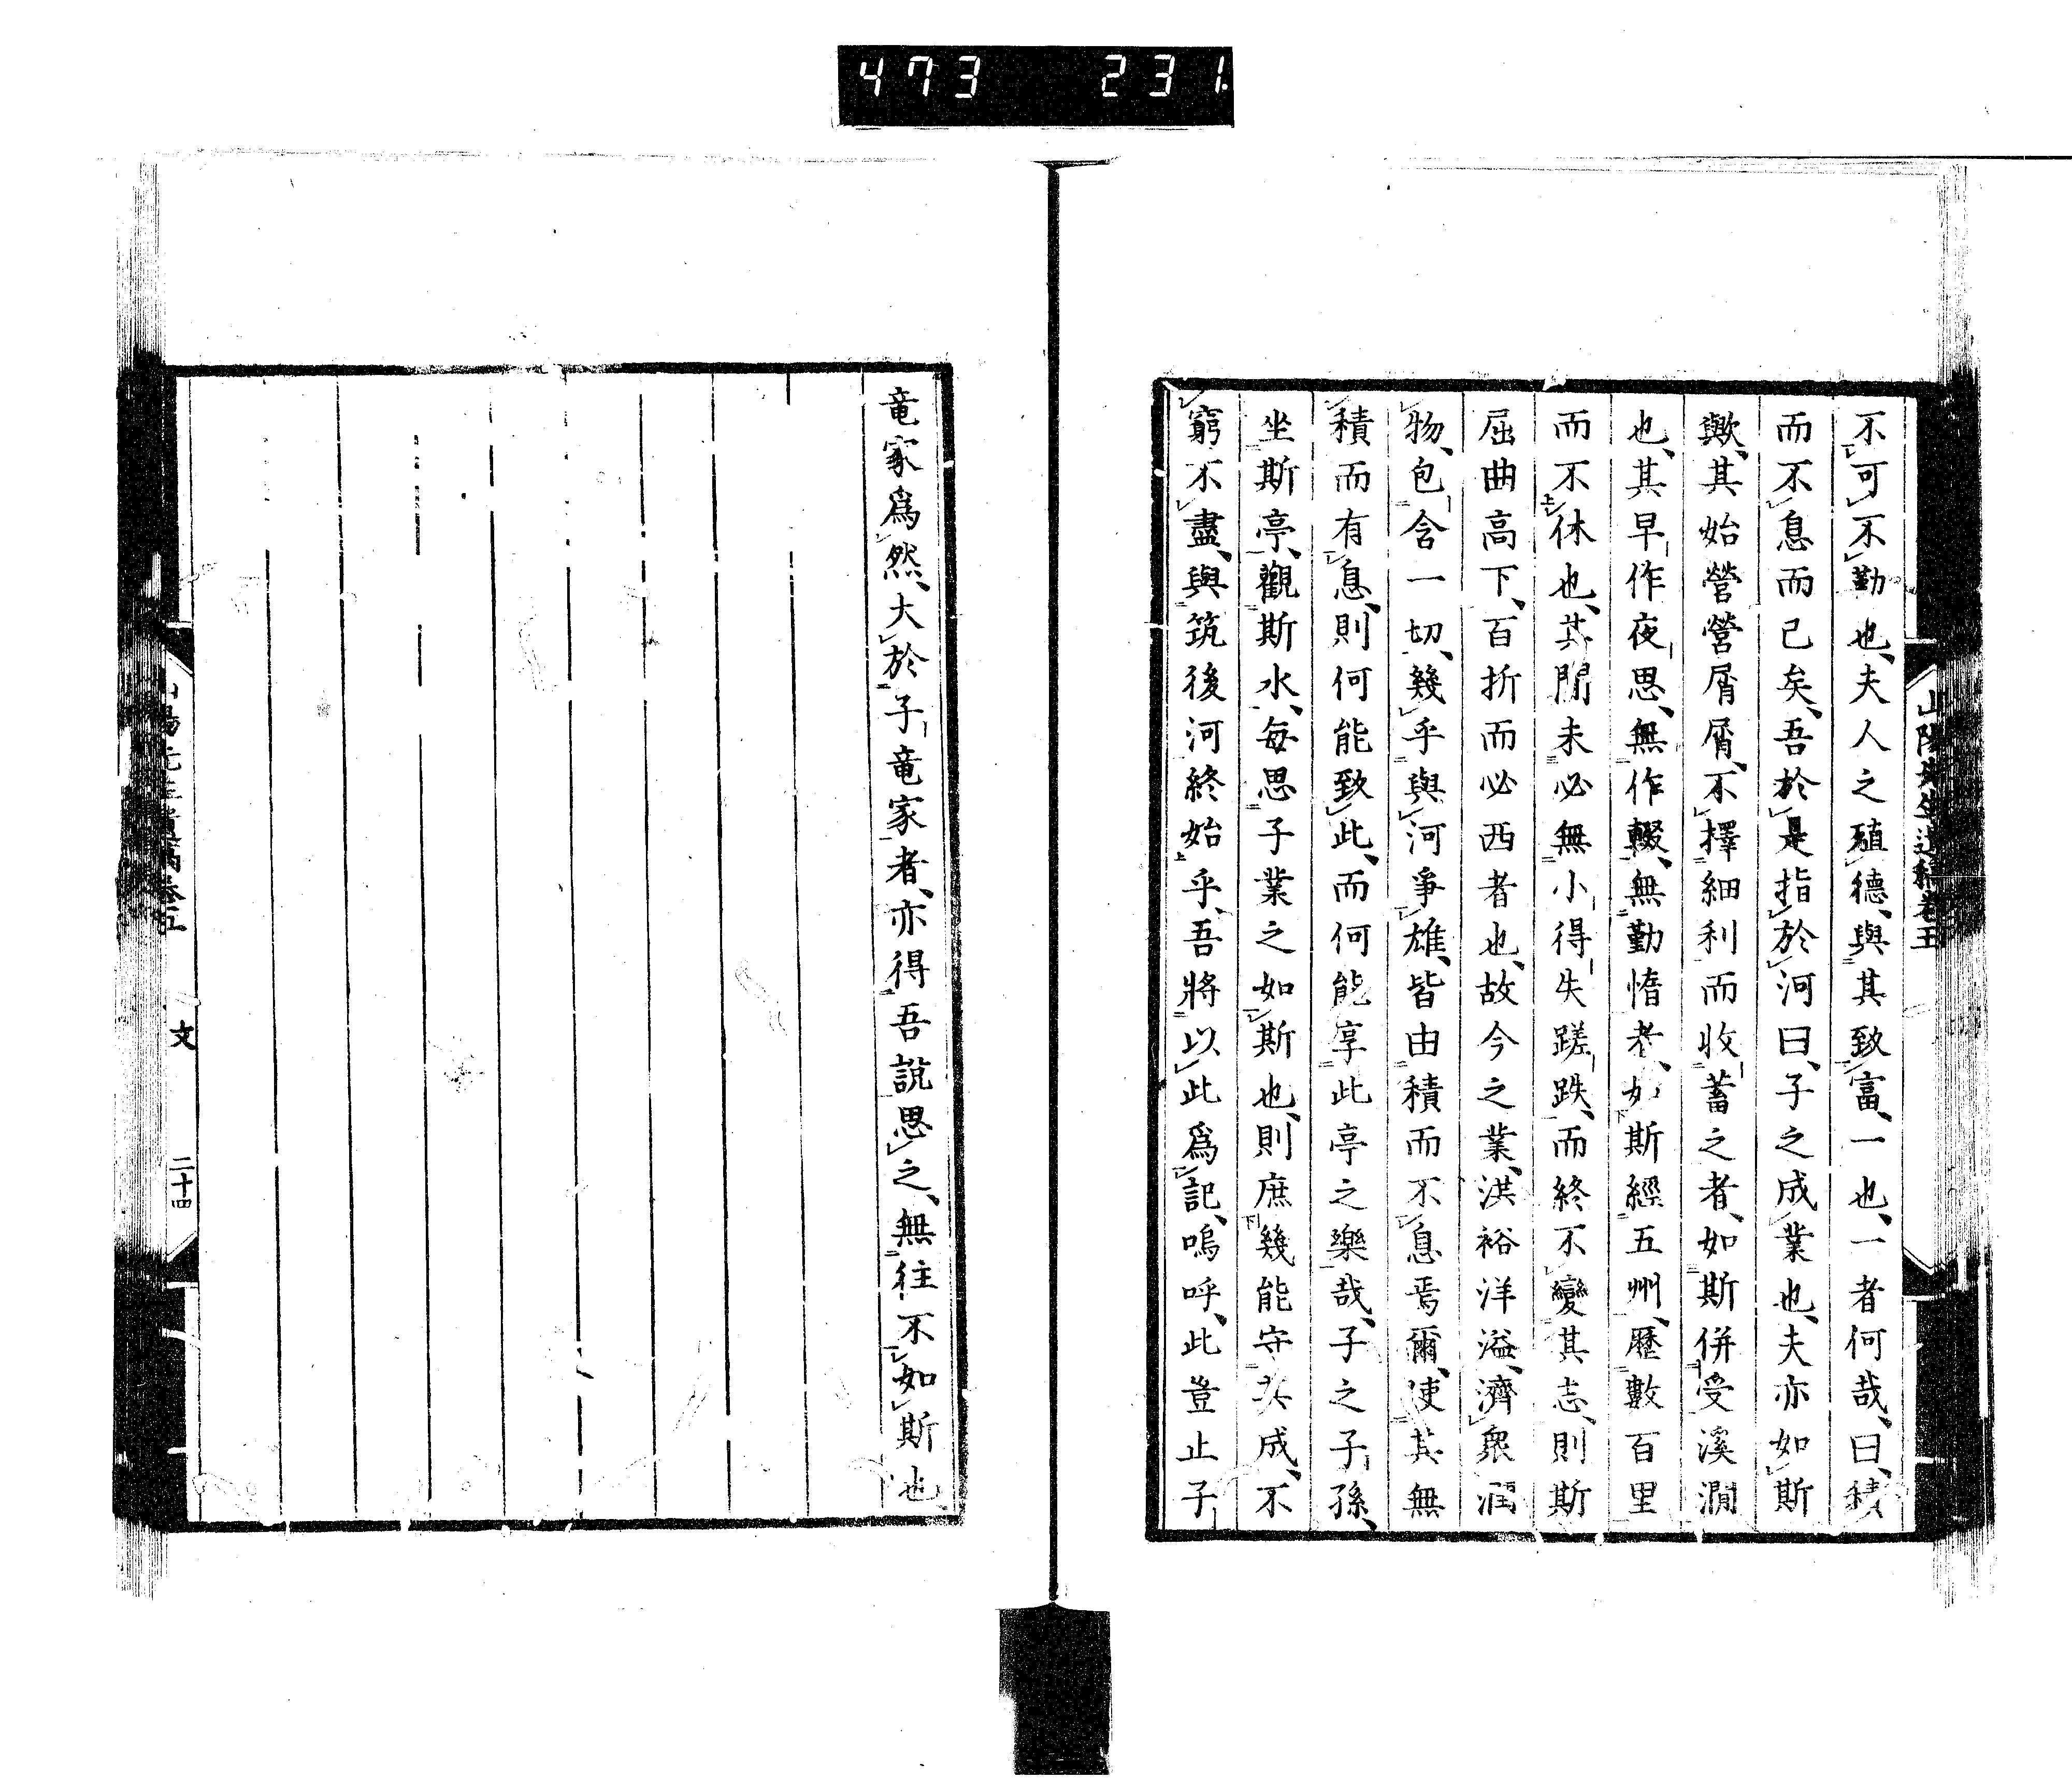 473 231.
山陽先生遺稿卷五
不可不勤也、夫人之殖德、與其致富、一也、一者何哉、曰、積
而不息而已矣、吾於是指於河曰、子之成業也、夫亦如斯
歟、其始營營屑屑、不擇細利而收蓄之者、如斯併受溪澗
也、其早作夜思、無作輟、無勤惰者、如斯經五州、歷數百里
而不休也、其間未必無小得失蹉跌、而終不變其志、則斯
屈曲高下、百折而必西者也、故今之業、洪裕洋溢、濟眾潤
物、包含一切、幾乎與河爭雄、皆由積而不息焉爾、使其無
積而有息、則何能致此、而何能享此亭之樂哉、子之子孫、
坐斯亭、觀斯水、每思子業之如斯也、則庶幾能守其成、不
窮不盡、與筑後河終始乎、吾將以此為記、嗚呼、此豈止子
竜家為然、大於子竜家者、亦得吾說思之、無往不如斯也
山陽先生遺稿卷五 文 二十四